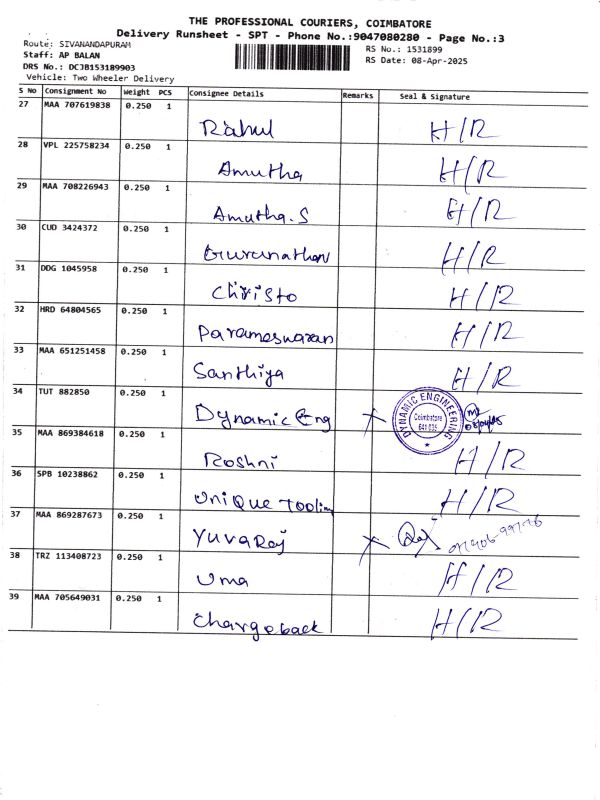 THE PROFESSIONAL COURIERS, COIMBATORE
Delivery Runsheet - SPT - Phone No.:9047080280 - Page No.:3
Route: SIVANANDAPURAM
RS No.: 1531899
Staff: AP BALAN
RS Date: 08-Apr-2025
DRS No.: DCJB153189903
Vehicle: Two Wheeler Delivery
S No Consignment No Weight PCS Consignee Details Remarks Seal & Signature
27 MAA 707619838 0.250 1 Rahul H/R
28 VPL 225758234 0.250 1 Amutha H/R
29 MAA 708226943 0.250 1 Amutha.S H/R
30 CUD 3424372 0.250 1 Gurunathan H/R
31 DDG 1045958 0.250 1 Christo H/R
32 HRD 64804565 0.250 1 Parameswaran H/R
33 MAA 651251458 0.250 1 Santhiya H/R
34 TUT 882850 0.250 1 Dynamic Eng DYNAMIC ENGINEERING Coimbatore 641 035
35 MAA 869384618 0.250 1 Roshni H/R
36 SPB 10238862 0.250 1 Unique Tooling H/R
37 MAA 869287673 0.250 1 Yuvaraj
38 TRZ 113408723 0.250 1 Uma H/R
39 MAA 705649031 0.250 1 Chargeback H/R